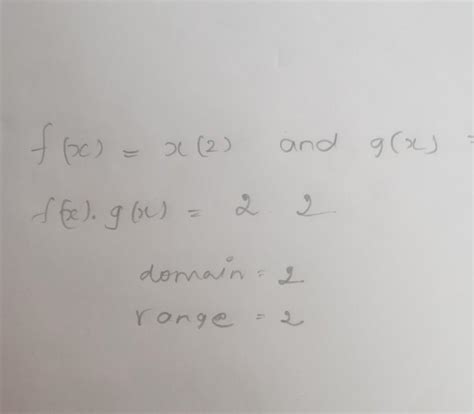 f(x) = x(2) and g(x) =
f(x). g(x) = 2 2
domain = 2
range = 2